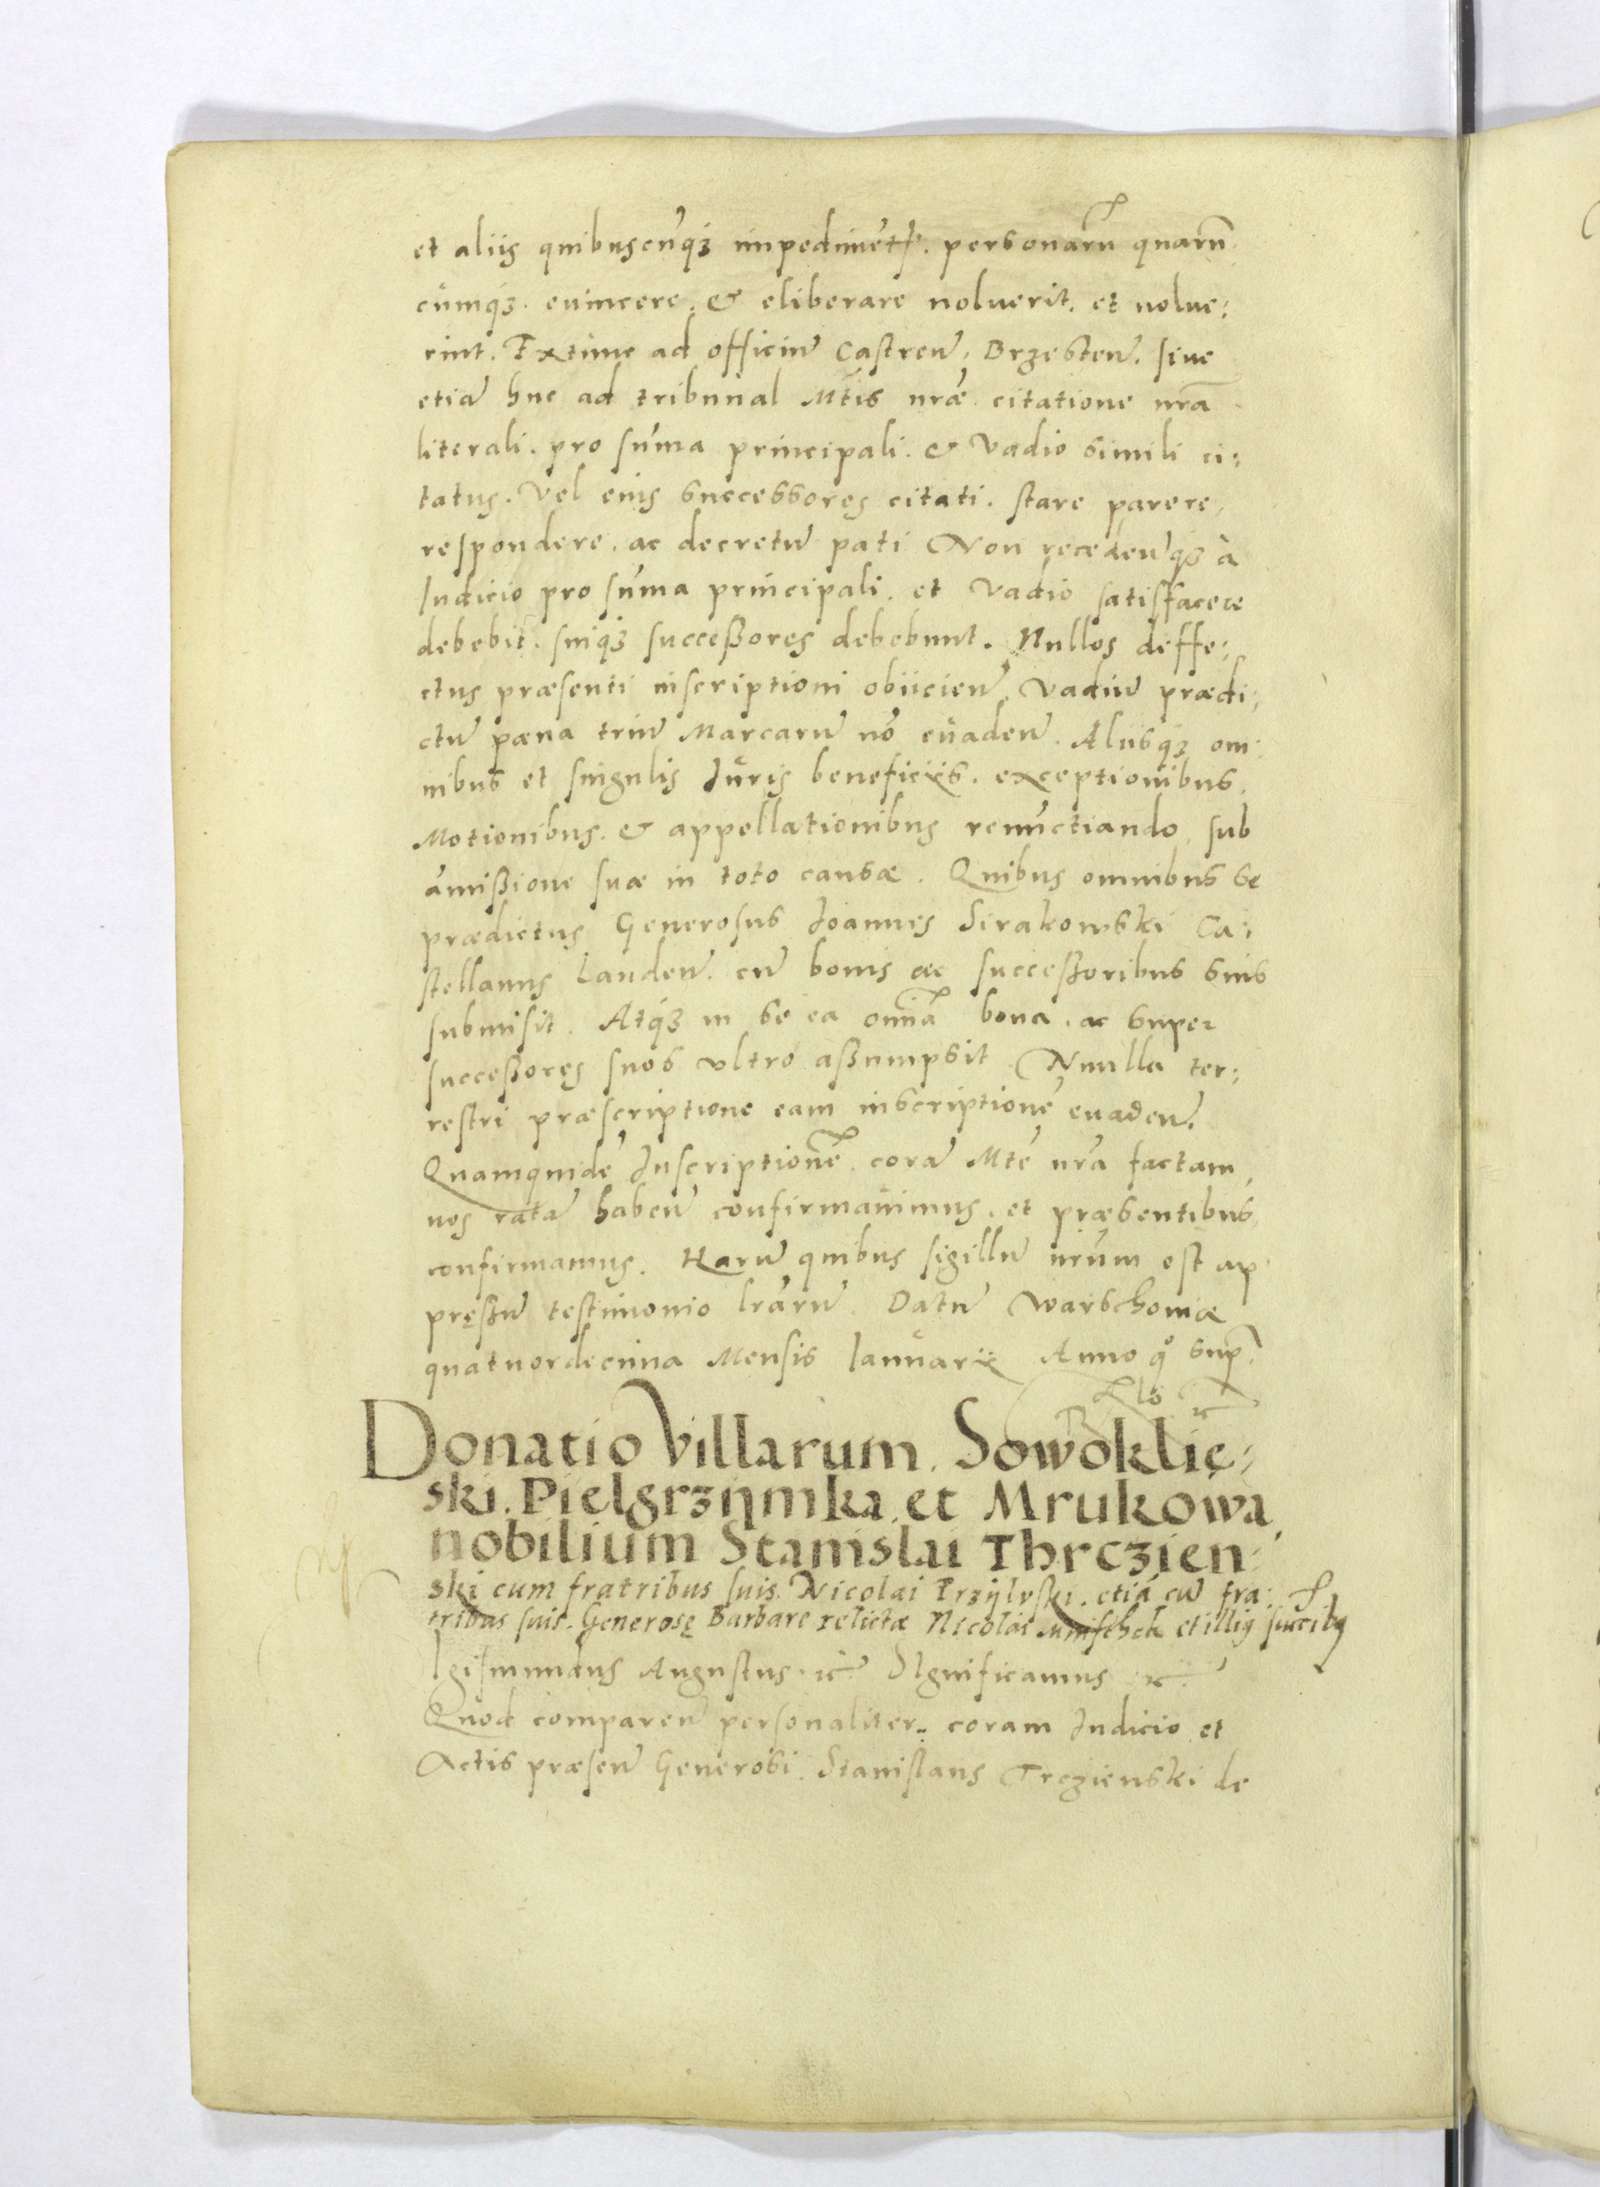 et aliis quibuscūqꝫ impedimēt. personarū quarū
cumqꝫ. euincere. & eliberare noluerit. et nolue:
rint. Extunc ad officiū Castreñ. Brzesteñ. siue
etiā huc ad tribunal Mtis nrǣ citatione nrā
literali. pro sūma principali. & Vadio simili ci:
tatus. Vel eius successores citati. stare parere,
respondere. ac decretū pati Non recedeñqꝫ à
Iudicio pro sūma principali. et Vadio satisfacere
debebit. suiqꝫ successores debebunt. Nullos deffe:
ctus præsenti inscriptioni obiicieñ, Vadiū prædi:
ctū pæna triū Marcarū nō euadeñ. Aliisqꝫ om
nibus et singulis Iuris beneficijs. exceptionibus.
Motionibus. & appellationibus renūctiando, sub
āmißione suæ in toto causæ. Quibus omnibus se
prædictus Generosus Ioannes Sirakowski Ca:
stellanus Landeñ. cū bonis ac succeßoribus suis
submisit. Atqꝫ in se ea omīa bona. ac super
succeßores suos vltro aßumpsit Nnulla ter:
restri præscriptione eam inscriptionē euadeñ.
Quamquidē Inscriptionē. corā Mtē nrā factam,
nos ratā habeñ confirmauimus. et præsentibus
confirmamus. Harū quibus sigillū nrūm est ap
pręßū testimonio lrārū. Datū Warschouiæ
quatuordecima Mensis Ianuarij Anno qº sup.
Donatio Villarum. Sowoklię:
ski. Pielgrzymka et Mrukowa
nobilium Stanislai Thrczien:
ski cum fratribus suis. Nicolai Przÿlvski. etiā cū fra:
tribus suis. Generosę Barbare relictæ Nicolai Mnischek et illiꝰ succibꝰ
Igismundus Augustus ꝛc SIgnificamus ꝛc
Quod compareñ personaliter. coram Iudicio et
Actis præseñ Generosi. Stanislaus Trczienski de